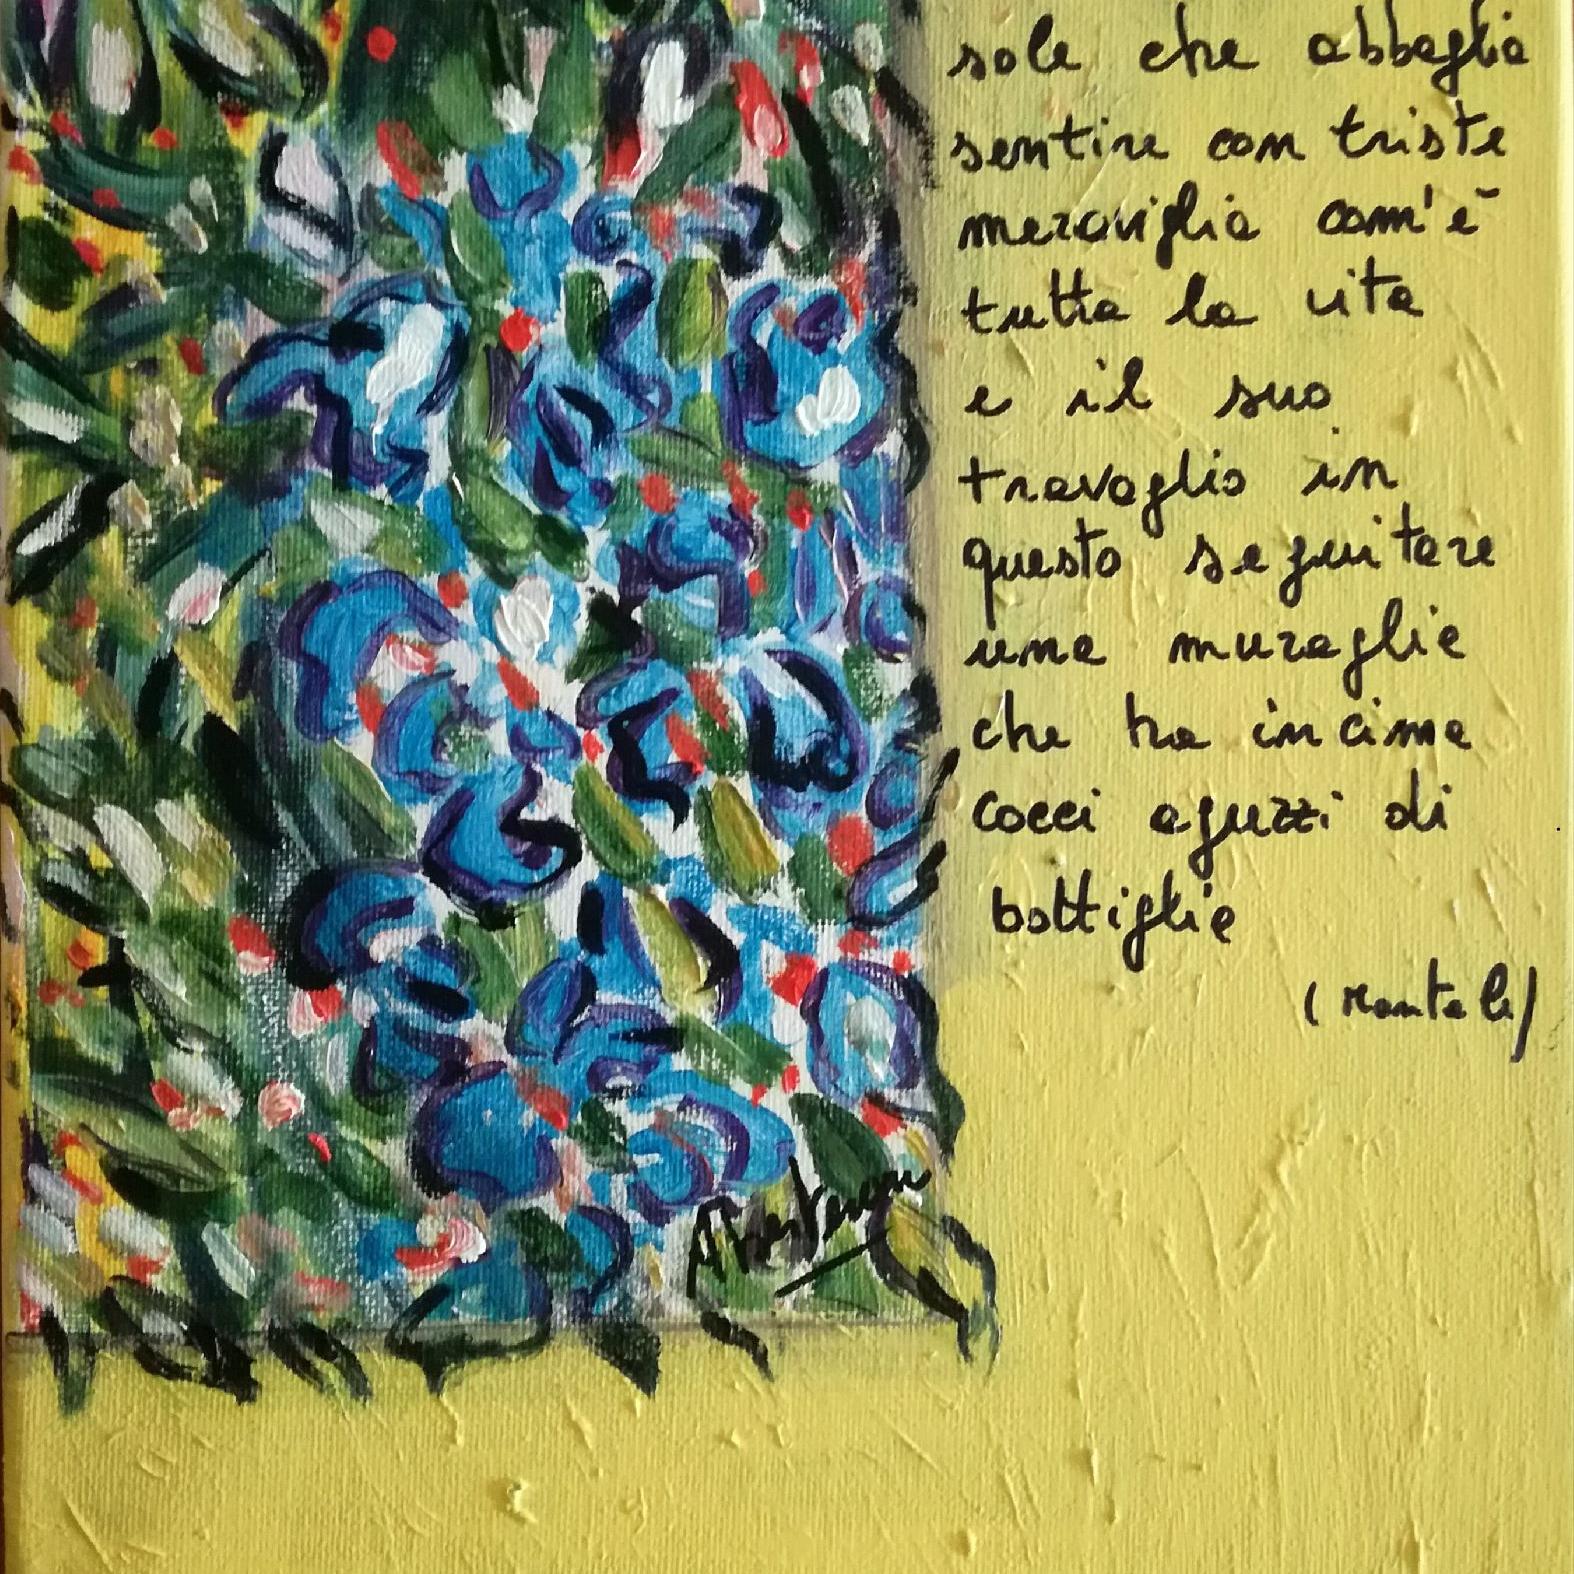 sole che abbaglia
sentire con triste
meraviglia com'è
tutta la vita
e il suo
travaglio in
questo seguitare
una muraglia
che ha in cima
cocci aguzzi di
bottiglia
(Montale)